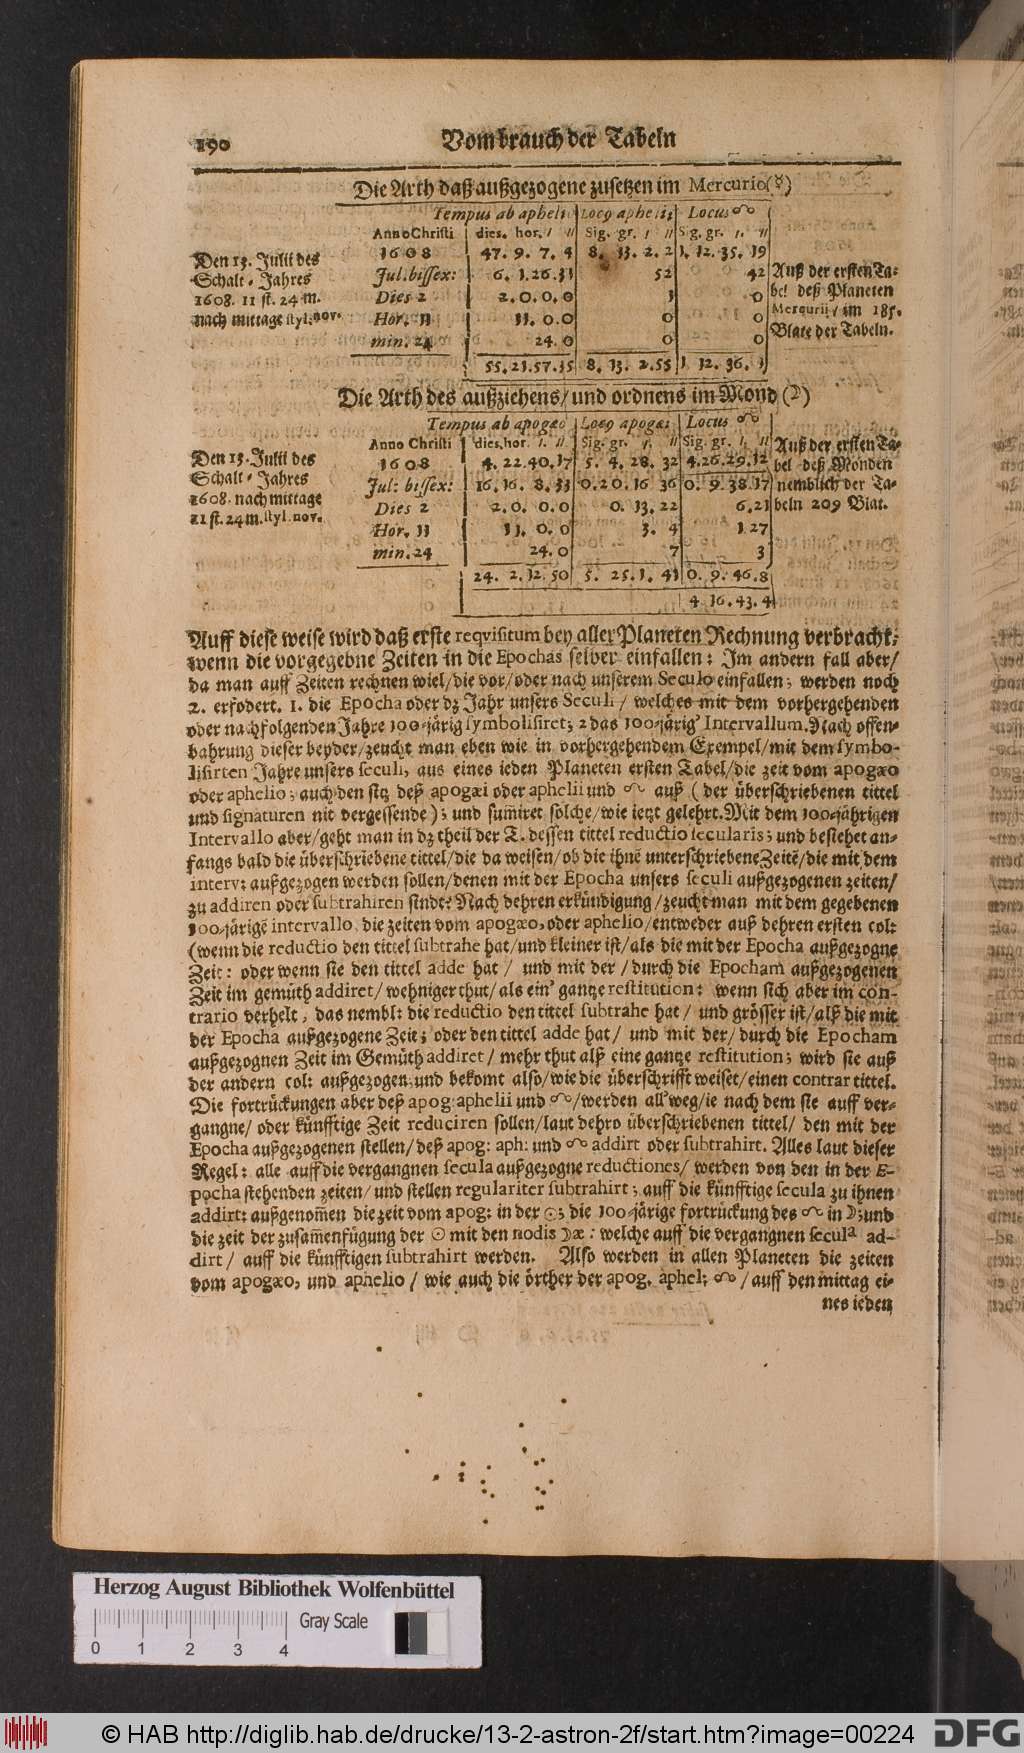 190 Vom brauch der Tabeln
Die Arth daß außgezogene zusetzen im Mercurio (☿)
Tempus ab aphelio Locꝰ aphelii Locus ☊
Anno Christi dies. hor. ı ıı Sig. gr. ı ıı Sig. gr. ı. ıı
1608 47. 9. 7. 4 8. 13. 2. 2 1. 12. 35. 19
Jul. bissex: 6. 1.26.31 52 42
Dies 2 2. 0. 0. 0 1 0
Hor. 11 11. 0. 0 0 0
min. 24 24. 0 0 0
55.21.57.35 8. 13. 2.55 1 12. 36. 1
Den 13. Julii des
Schalt-Jahres
1608. 11 st. 24 m.
nach mittage styl. nov.
Auß der ersten Ta-
bel deß Planeten
Mercurii/ im 185.
Blate der Tabeln.
Die Arth des außziehens/ und ordnens im Mond (☽)
Tempus ab apogæo Locꝰ apogæi Locus ☊
Anno Christi dies. hor. ı. ıı Sig. gr. ı. ıı Sig. gr. ı. ıı
1608 4. 22.40.17 5. 4. 28. 32 4.26.29.12
Jul: bissex: 16. 16. 8. 33 0.20. 16 36 0. 9. 38.17
Dies 2 2. 0. 0. 0 0. 13. 22 6.21
Hor. 11 11. 0. 0 3. 4 1 27
min. 24 24. 0 7 3
24. 2. 12. 50 5. 25. 1. 41 0. 9. 46.8
4. 16. 43. 4
Den 13. Julii des
Schalt-Jahres
1608. nach mittage
11 st. 24 m. styl. nov.
Auß der ersten Ta-
bel deß Monden
nemblich der Ta-
beln 209 Blat.
Auff diese weise wird daß erste reqvisitum bey aller Planeten Rechnung verbracht;
wenn die vorgegebne Zeiten in die Epochas selber einfallen: Im andern fall aber/
da man auff Zeiten rechnen wiel/ die vor/ oder nach unserem Seculo einfallen; werden noch
2. erfodert. 1. die Epocha oder dz Jahr unsers Seculi / welches mit dem vorhergehenden
oder nachfolgenden Jahre 100-järig symbolisiret; 2 das 100-järig' Intervallum. Nach offen-
bahrung dieser beyder/ zeucht man eben wie in vorhergehendem Exempel/ mit dem symbo-
lisirten Jahre unsers seculi, aus eines ieden Planeten ersten Tabel/ die zeit vom apogæo
oder aphelio; auch den sitz deß apogæi oder aphelii und ☊ auß ( der überschriebenen tittel
und signaturen nit vergessende ); und sum̃iret solche/ wie ietzt gelehrt. Mit dem 100-jährigen
Intervallo aber/ geht man in dz theil der T. dessen tittel reductio secularis; und bestehet an-
fangs bald die überschriebene tittel/ die da weisen/ ob die ihnē unterschriebene Zeitē/ die mit dem
interv: außgezogen werden sollen/ denen mit der Epocha unsers seculi außgezogenen zeiten/
zu addiren oder subtrahiren sindt? Nach dehren erkündigung/ zeucht man mit dem gegebenen
100-järigē intervallo, die zeiten vom apogæo, oder aphelio/ entweder auß dehren ersten col:
(wenn die reductio den tittel subtrahe hat/ und kleiner ist/ als die mit der Epocha außgezogne
Zeit: oder wenn sie den tittel adde hat / und mit der / durch die Epocham außgezogenen
Zeit im gemüth addiret/ wehniger thut/ als ein' gantze restitution: wenn sich aber im con-
trario verhelt, das nembl: die reductio den tittel subtrahe hat/ und grösser ist/ alß die mit
der Epocha außgezogene Zeit; oder den tittel adde hat / und mit der/ durch die Epocham
außgezognen Zeit im Gemüth addiret / mehr thut alß eine gantze restitution; wird sie auß
der andern col: außgezogen; und bekomt also/ wie die überschrifft weiset/ einen contrar tittel.
Die fortrückungen aber deß apog: aphelii und ☊/ werden all'weg/ ie nach dem sie auff ver-
gangne/ oder künfftige Zeit reduciren sollen/ laut dehro überschriebenen tittel/ den mit der
Epocha außgezogenen stellen/ deß apog: aph: und ☊ addirt oder subtrahirt. Alles laut dieser
Regel: alle auff die vergangnen secula außgezogne reductiones/ werden von den in der E-
pocha stehenden zeiten/ und stellen regulariter subtrahirt; auff die künfftige secula zu ihnen
addirt: außgenom̃en die zeit vom apog: in der ☉; die 100-järige fortrückung des ☊ in ☽; und
die zeit der zusam̃enfügung der ☉ mit den nodis ☽æ: welche auff die vergangnen secula ad-
dirt / auff die künfftigen subtrahirt werden. Also werden in allen Planeten die zeiten
vom apogæo, und aphelio / wie auch die örther der apog. aphel; ☊ / auff den mittag ei-
nes ieden
Herzog August Bibliothek Wolfenbüttel
Gray Scale
0 1 2 3 4
© HAB http://diglib.hab.de/drucke/13-2-astron-2f/start.htm?image=00224 DFG